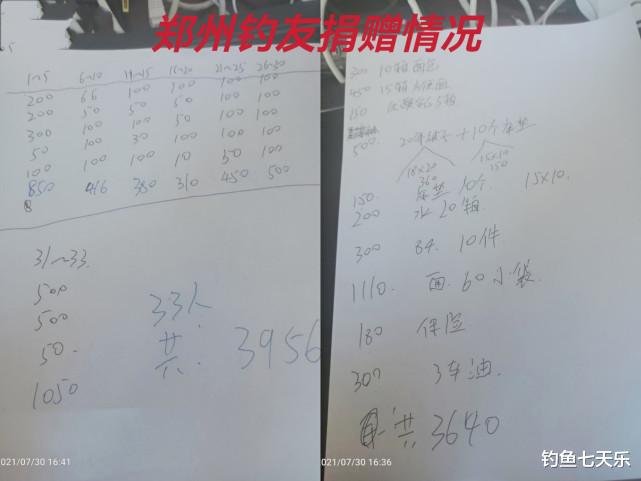 郑州钓友捐赠情况
5
1~5 6~10 11~15 16~20 21~25 26~30
200 66 100 100 100 100
200 50 50 50 100 100
300 100 100 50 100 100
50 100 30 100 100 100
100 100 100 10 50 100
850 416 380 310 450 500
31~33
500
500
50
1050
33人
共. 3956
2021/07/30 16:41
300 10箱面包
450 15箱方便面
150
500 20 + 10个床垫
18×20 15×10
360 150
150. 床垫 10个. 15×10.
200 水 20箱
300 84. 10件
1110. 面. 60小袋.
180 保险
300 3车油.
共 3640
2021/07/30 16:36
钓鱼七天乐